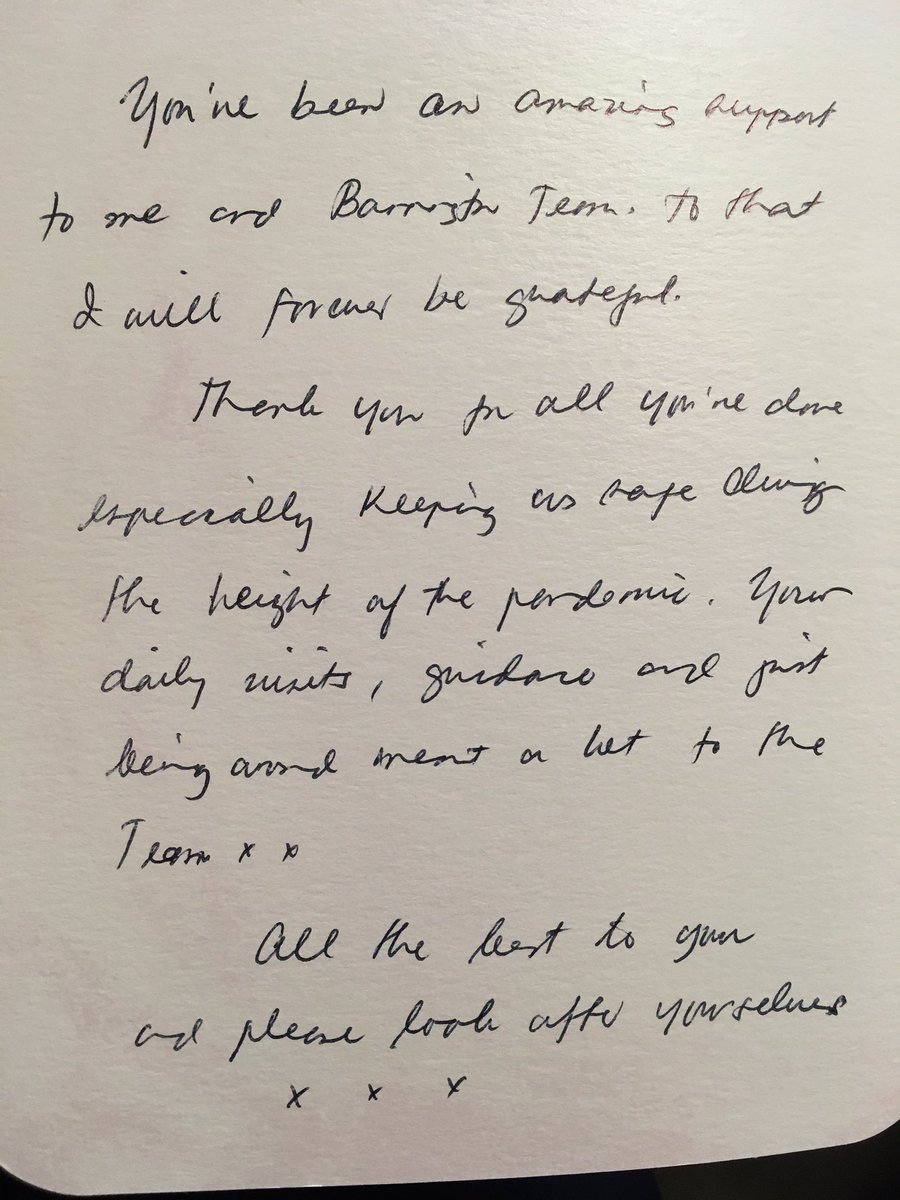 You've been an amazing support
to me and Barrington Team. To that
I will forever be grateful.
Thank you for all you've done
especially keeping us safe during
the height of the pandemic. Your
daily visits, guidance and just
being around meant a lot to the
Team x x
All the best to you
and please look after yourselves
x x x